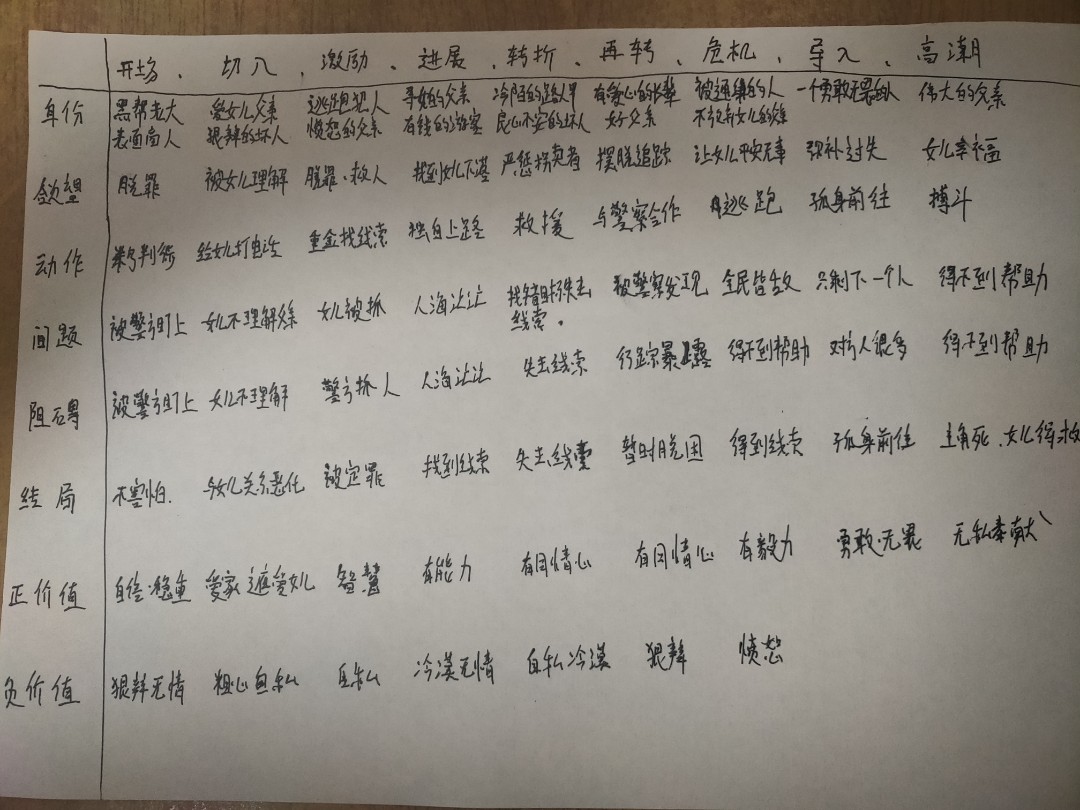 开场、切入、激励、进展、转折、再转、危机、导入、高潮
身份 黑帮老大 爱女儿父亲 逃跑犯人 寻女的父亲 冷陌的路人甲 有爱心的长辈 被通缉的人 一个勇敢无畏的人 伟大的父亲
表面商人 狠辣的坏人 愤怒的父亲 有钱的游客 良心不安的坏人 好父亲
欲望 脱罪 被女儿理解 脱罪·救人 找到女儿下落 严惩拐卖者 摆脱追踪 让女儿平安无事 弥补过失 女儿幸福
动作 给女儿打电话 重金找线索 独自上路 救援 与警察合作 逃跑 孤身前往 搏斗
问题 被警方盯上 女儿不理解父亲 女儿被抓 人海茫茫 找错目标失去线索。 被警察发现 全民皆敌 只剩下一个人 得不到帮助
阻碍 被警方盯上 女儿不理解 警方抓人 人海茫茫 失去线索 行踪暴露 得不到帮助 对方人很多 得不到帮助
结局 不害怕. 与女儿关系恶化 被定罪 找到线索 失去线索 暂时脱困 得到线索 孤身前往 主角死、女儿得救
正价值 自信·稳重 爱家 遮爱女儿 智慧 有能力 有同情心 有同情心 有毅力 勇敢·无畏 无私奉献
负价值 狠辣无情 粗心自私 自私 冷漠无情 自私冷漠 狠辣 愤怒